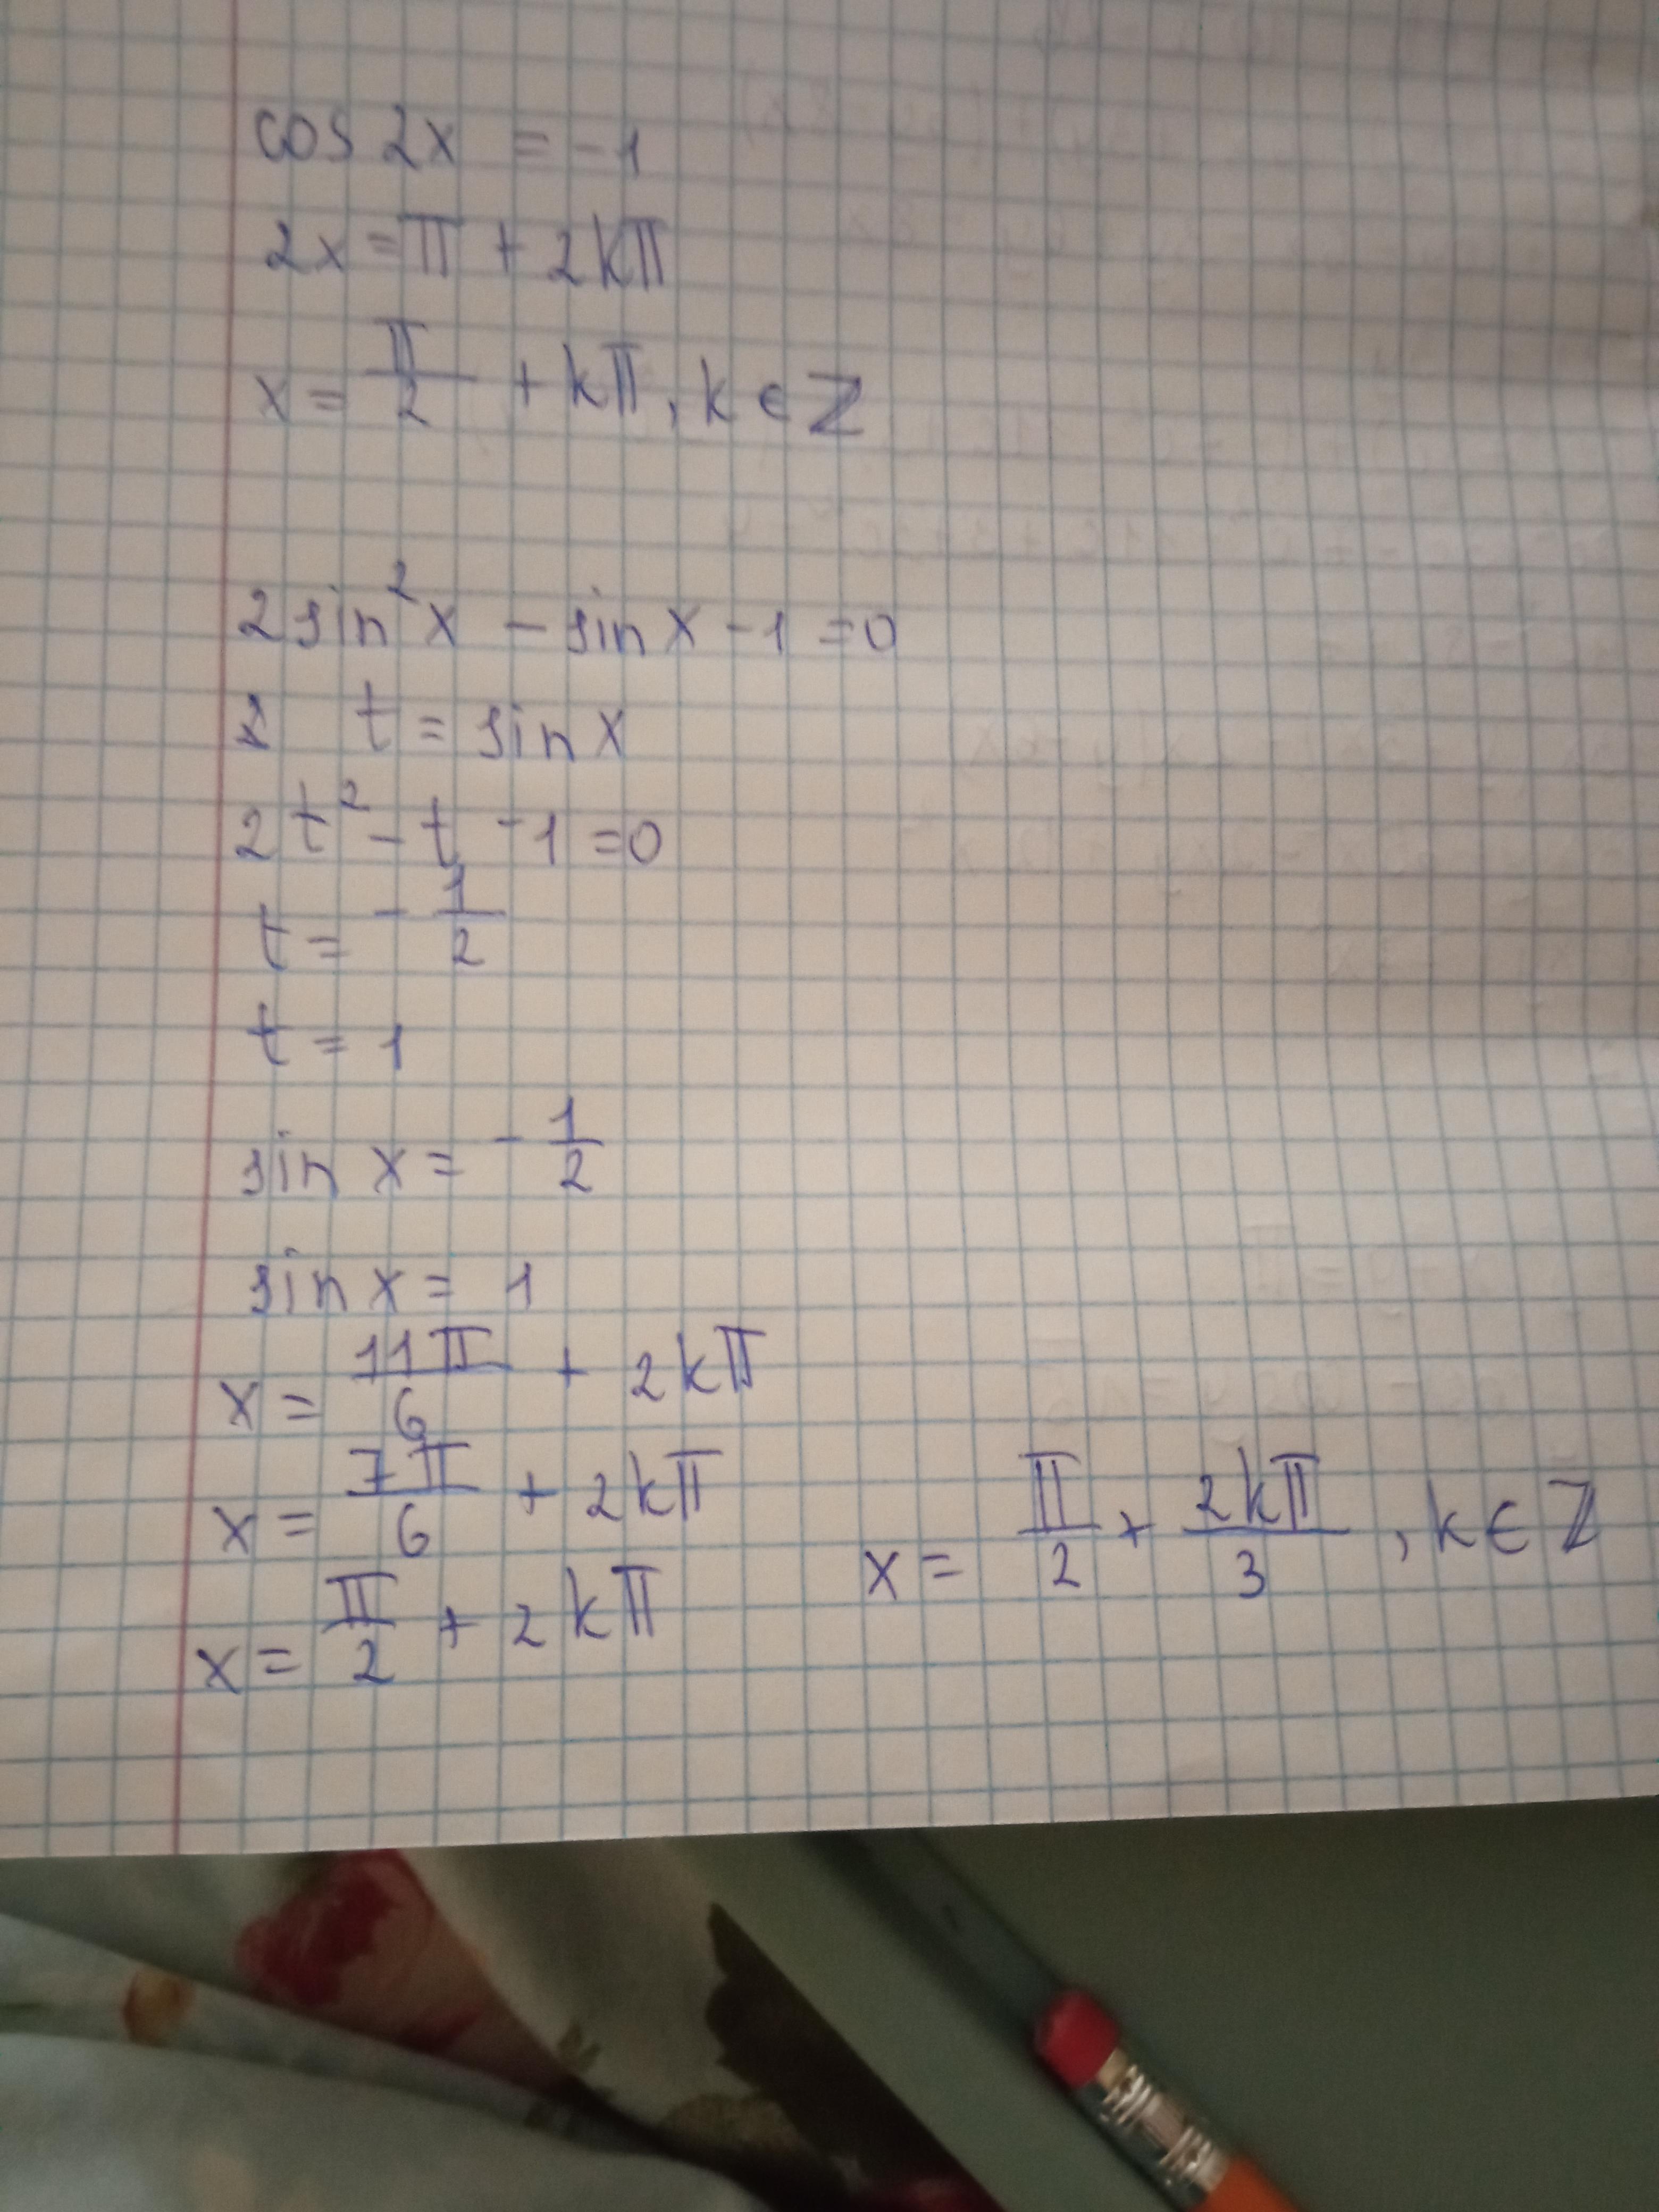 cos 2x = -1
2x = π + 2kπ
x = π/2 + kπ, k ∈ Z
2 sin²x - sin x - 1 = 0
t = sin x
2t² - t - 1 = 0
t = - 1/2
t = 1
sin x = - 1/2
sin x = 1
x = 11π/6 + 2kπ
x = 7π/6 + 2kπ
x = π/2 + 2kπ
x = π/2 + 2kπ/3, k ∈ Z